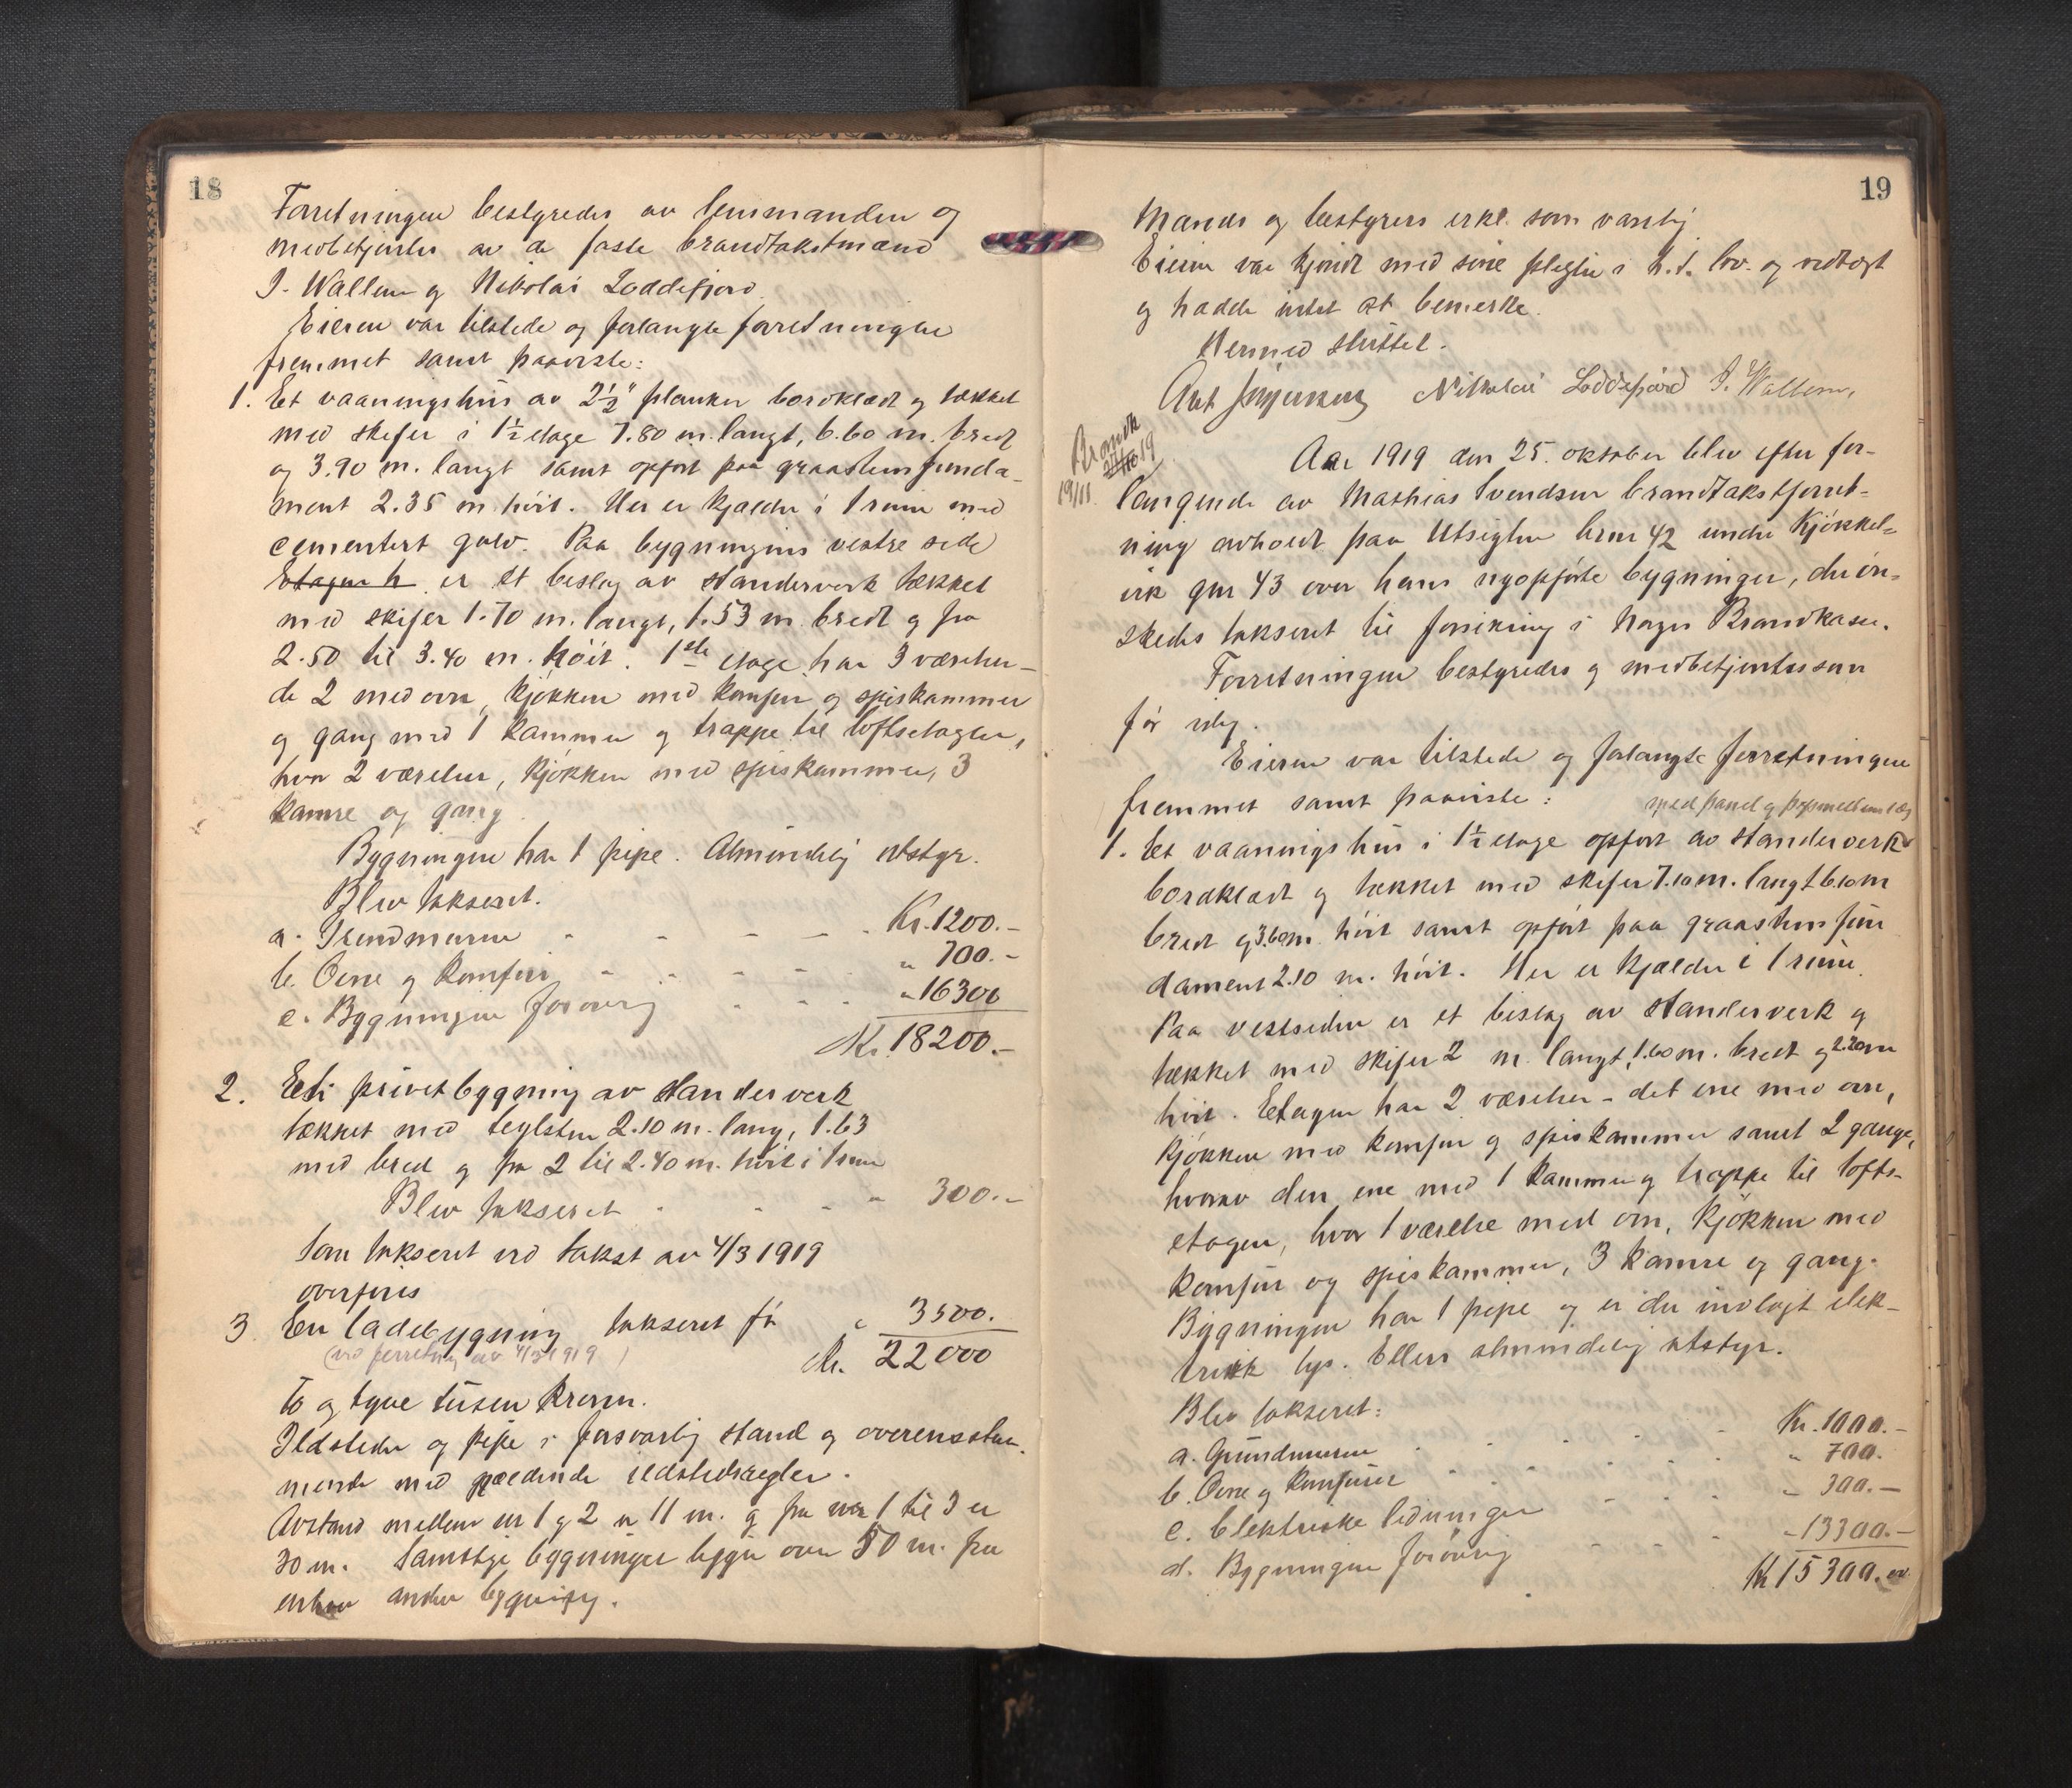 18
Forretningen bestyredes av lensmanden og
medbetjentes av de faste brandtakstmænd
J. Wallem og Nikolai Loddefjord
Eieren var tilstede og forlangte forretningen
fremmet samt paaviste:
1. Et vaaningshus av 2½" planker bordklædt og tækket
med skifer i 1½ etage 7.80 m. langt, 6.60 m. bredt
og 3.90 m. langt samt opført paa graastensfunda-
ment 2.35 m høit. Her er kjælder i 1 rum med
cementert gulv. Paa bygningens vestre side
Etagen h er et beslag av standerverk tækket
med skifer 1.70 m. langt, 1.53 m. bredt og fra
2.50 til 3.40 m. høit. 1ste etage har 3 værelser-
de 2 med ovn, kjøkken med komfur og spiskammer
og gang med 1 kammer og trappe til loftsetagen,
hvor 2 værelser, kjøkken med spiskammer, 3
kamre og gang
Bygningen har 1 pipe. Almindelig utstyr.
Blev takseret.
a. Grundmuren - - - - - Kr. 1200.-
b. Ovne og komfur - - - - - " 700.-
c. Bygningen forøvrig - - - - " 16300
Kr. 18200.-
2. Et privetbygning av standerverk
tækket med teglsten 2.10 m. lang, 1.63
med bred og fra 2 til 2.40 m. høit i 1 rum
Blev takseret - - - " 300.-
Som takseret ved takst av 4/3 1919
overføres
3. En ladebygning takseret for " 3500.
(ved forretning av 4/3 1919)
Kr. 22000
To og tyve tusen kroner.
Ildsteder og pipe i forsvarlig stand og overensstem-
mende med gjældende ildstedsregler.
Avstand mellem nr 1 og 2 er 11 m. og fra nr 1 til 3 er
30 m. Samtlige bygninger ligger over 50 m. fra
enhver anden bygning.
19
Mænds og bestyrers erkl. som vanlig
Eieren var kjendt med sine pligter i h.t. lov og vedtægt
og hadde intet at bemerke.
Hermed sluttet.
Nikolai Loddefjord J. Wallem,
Brandk
19/11.
Aar 1919 den 25. oktober blev efter for-
langende av Mathias Svendsen brandtakstforret-
ning avholdt paa Utsigten brnr 42 under Kjøkkel-
vik gnr 43 over hans nyopførte bygninger, der øn-
skedes takseret til forsikring i Norges Brandkasse.
Forretningen bestyredes og medbetjentes som
før
Eieren var tilstede og forlangte forretningen
fremmet samt paaviste:
med panel og papmellemlæg
1. Et vaaningshus i 1½ etage opført av standerverk
bordklædt og tækket med skifer 7.10 m. langt 6.10 m
bredt og 3.60 m. høit samt opført paa graastensfun
dament 2.10 m. høit. Her er kjælder i 1 rum.
Paa vestsiden er et bislag av standerverk og
tækket med skifer 2 m. langt, 1.60 m. bredt og 2.20 m
høit. Etagen har 2 værelser - det ene med ovn,
kjøkken med komfur og spiskammer samt 2 gange,
hvorav den ene med 1 kammer og trappe til lofts-
etagen, hvor 1 værelse med ovn, kjøkken med
komfur og spiskammer, 3 kamre og gang.
Bygningen har 1 pipe og er der indlagt elek-
trisk lys. Ellers almindelig utstyr.
Blev takseret:
a. Grundmuren - - - - - - Kr. 1000.-
b. Ovne og komfurer - - - - - " 700.
c. Elektriske ledninger - - - - " 300.-
d. Bygningen forøvrig - - - - 13300.-
Kr 15300.